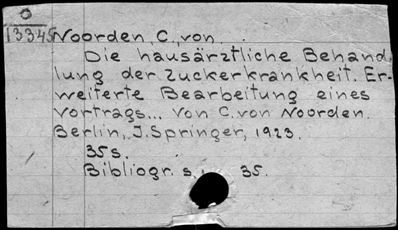 O
13345 Noorden, C. von
Die hausärztliche Behand
lung der Zuckerkrankheit. Er-
weiterte Bearbeitung eines
Vortrags... von C. von Noorden.
Berlin, J. Springer, 1923.
35 s.
Bibliogr. s. 35.